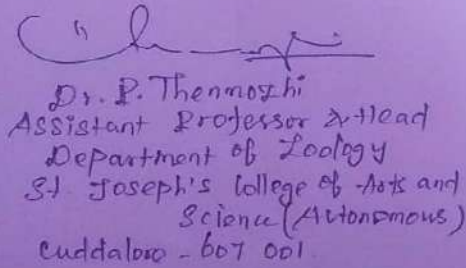 Dr. P. Thenmozhi
Assistant Professor & Head
Department of Zoology
St. Joseph's College of Arts and
Science (Autonomous)
Cuddalore - 607 001.